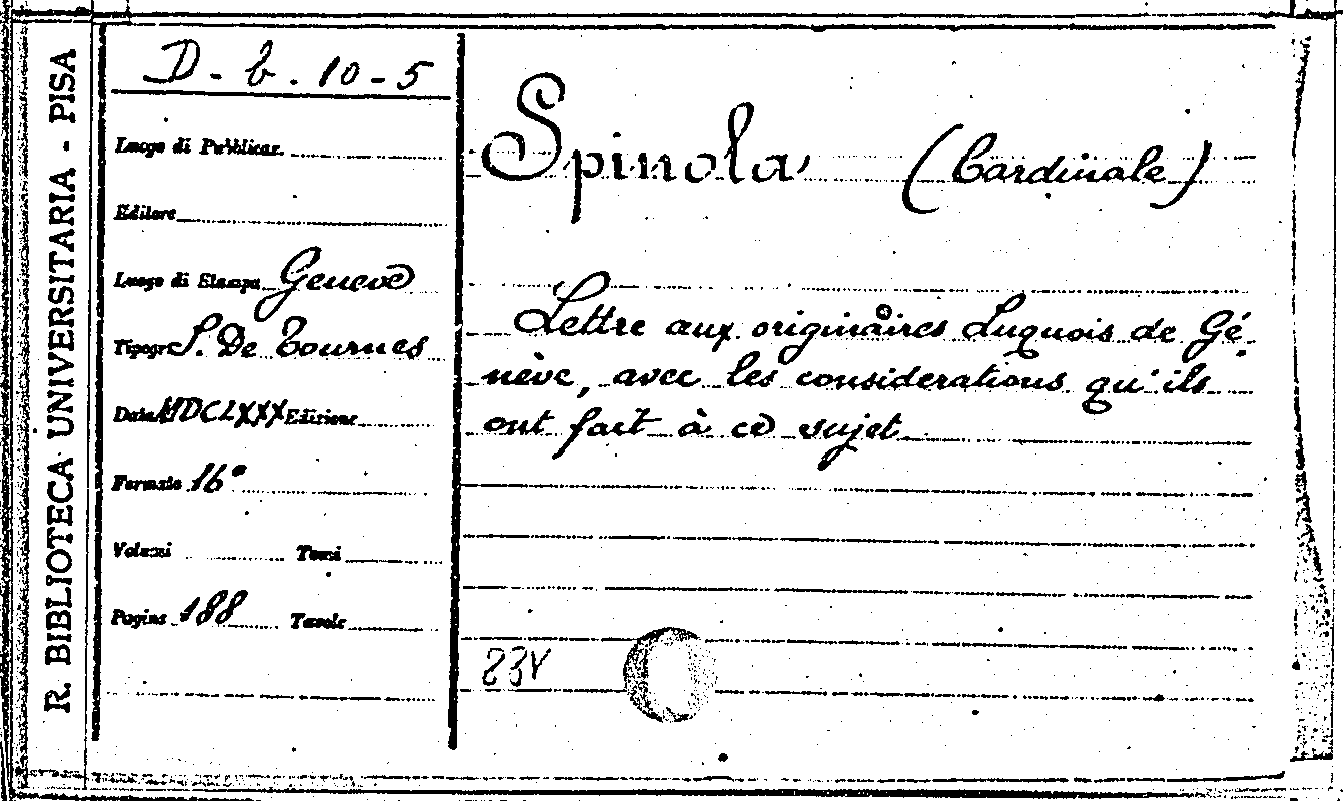 R. BIBLIOTECA UNIVERSITARIA - PISA
D - b. 10 - 5
Luogo di Pubblicaz.
Editore
Luogo di Stampa Geneve
Tipogr. S. De Tournes
Data MDCLXXX Edizione
Formato 16°
Volumi Tomi
Pagine 188 Tavole
Spinola (Cardinale)
Lettre aux originaires Luquois de Gé-
nève, avec les considerations qu'ils
ont fait à ce sujet